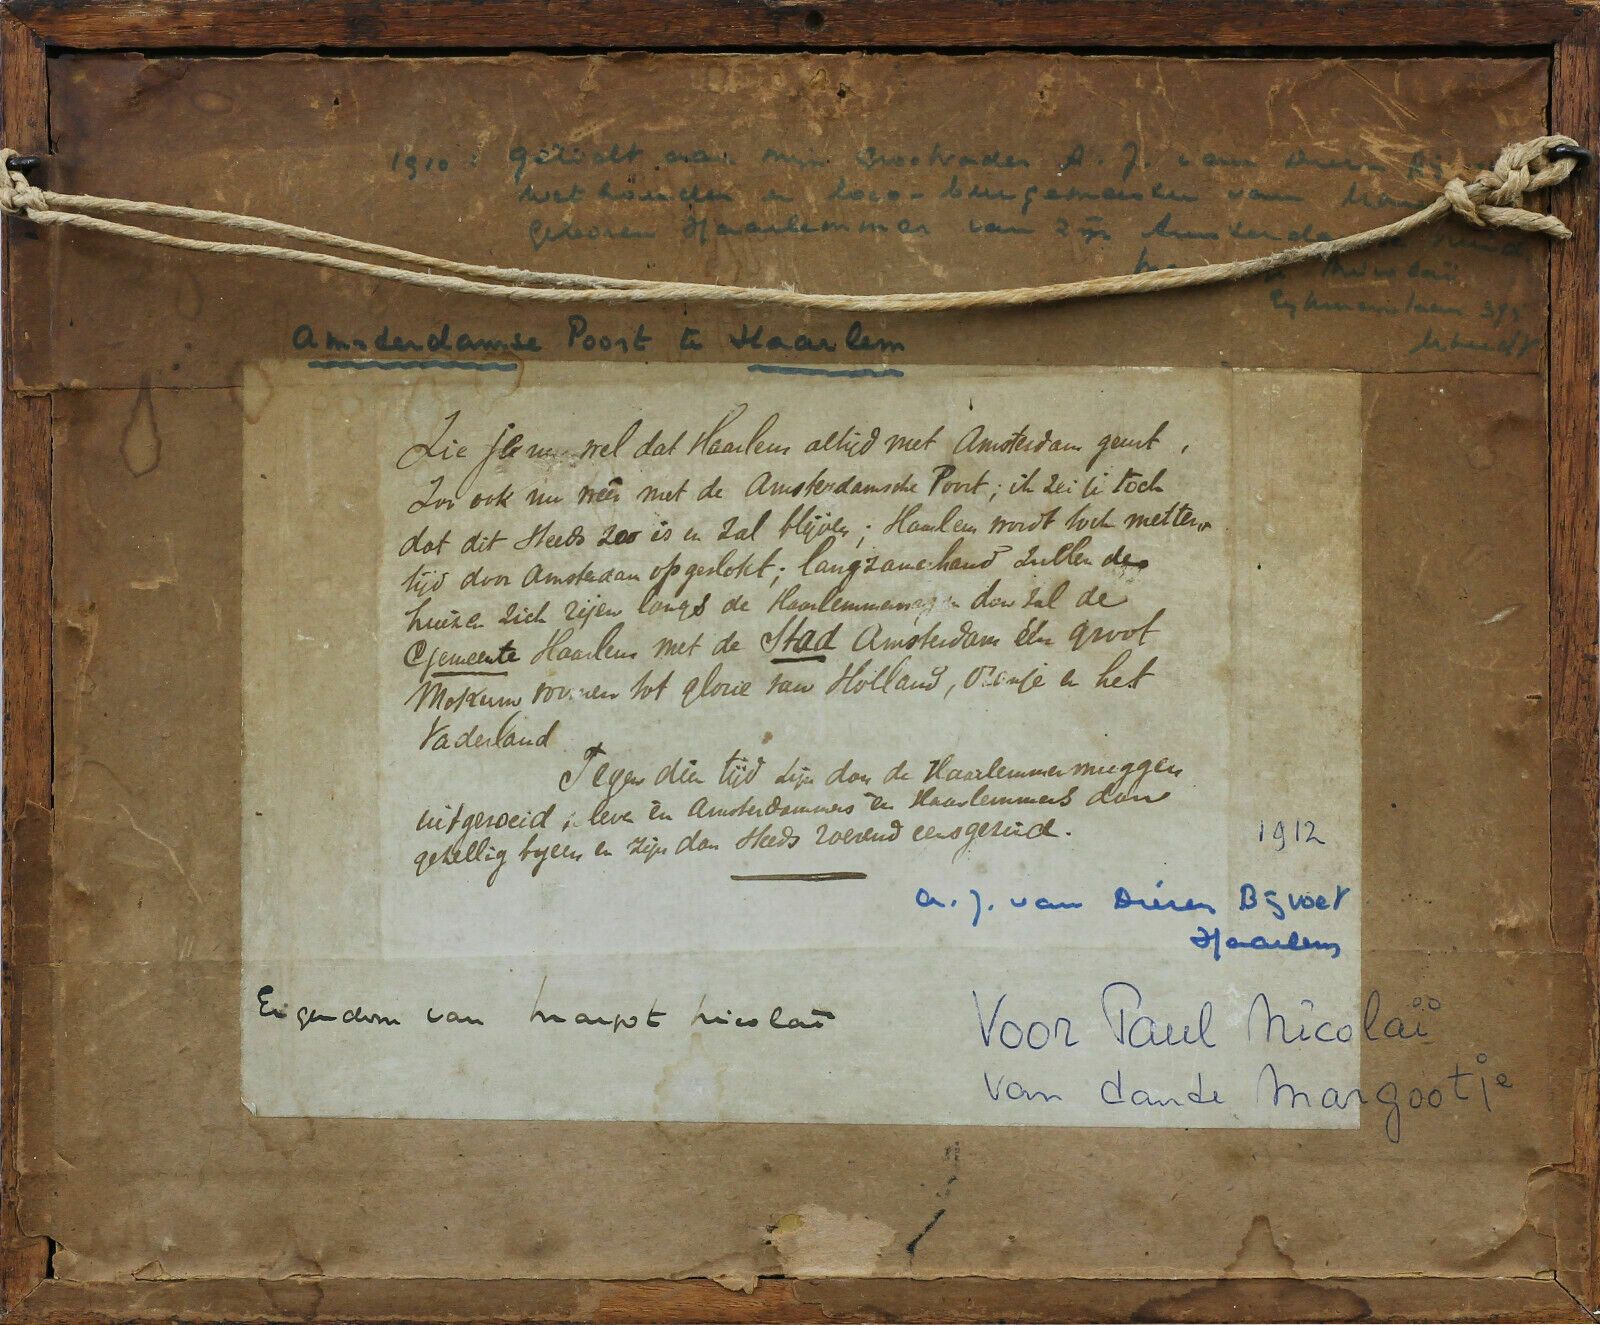 1910: aan mijn Grootvader A. J. van Dieren
wethouder en loco-burgemeester van
geboren Haarlemmer van zijn
Nicolaï
395
Utrecht
Amsterdamse Poort te Haarlem
Zie je nu wel dat Haarlem altijd met Amsterdam
Zoo ook nu weer met de Amsterdamsche Poort; ik zei je toch
dat dit steeds zoo is en zal blijven; Haarlem wordt toch metter
tijd door Amsterdam opgeslokt; langzamerhand zullen de
huizen zich rijen langs de dan zal de
Gemeente Haarlem met de Stad Amsterdam één groot
Mokum vormen tot glorie van Holland, Oranje en het
Vaderland
Tegen dien tijd zijn dan de Haarlemmermuggen
uitgeroeid, leven én Amsterdammers én Haarlemmers dan
gezellig bijeen en zijn dan steeds roerend eensgezind.
1912
A. J. van Dieren Bijvoet
Haarlem
Eigendom van Margot Nicolaï
Voor Paul Nicolaï
van tante Margootje